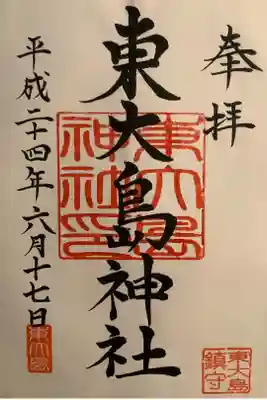 奉拝
東大島神社
東大島神社印
平成二十四年六月十七日
東大島
東大島鎮守